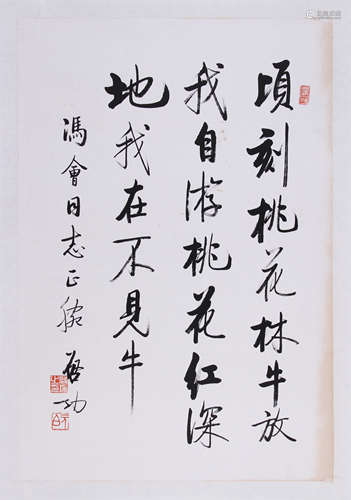 頃刻桃花林牛放
我自游桃花红深
地我在不見牛
馮會同志正腕
启功